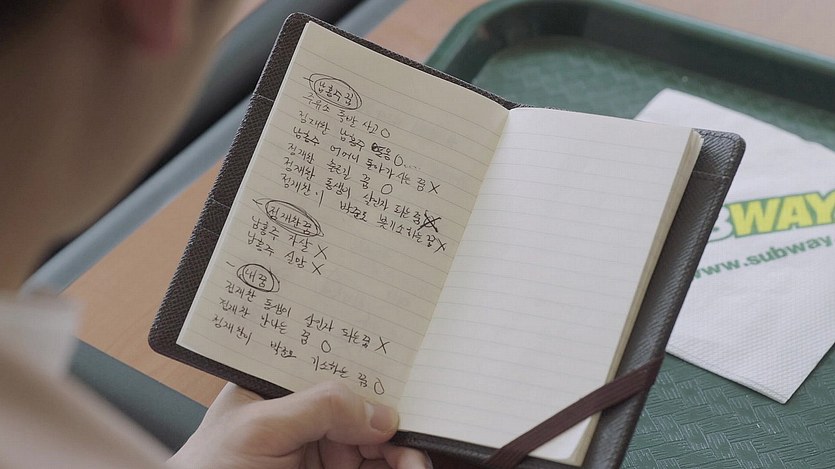 남홍주 꿈
주유소 사고 O
정재찬 남홍주 포옹 O....
남홍주 어머니 돌아가시는 꿈 X
정재찬 꿈 O
정재찬 동생이 살인자 되는 꿈 X
정재찬이 박준모 불기소하는 꿈 X
정재찬 꿈
남홍주 자살 X
남홍주 X
내 꿈
정재찬 동생이 살인자 되는 꿈 X
정재찬 만나는 꿈 O
정재찬이 박준모 기소하는 꿈 O
BWAY
www.subway